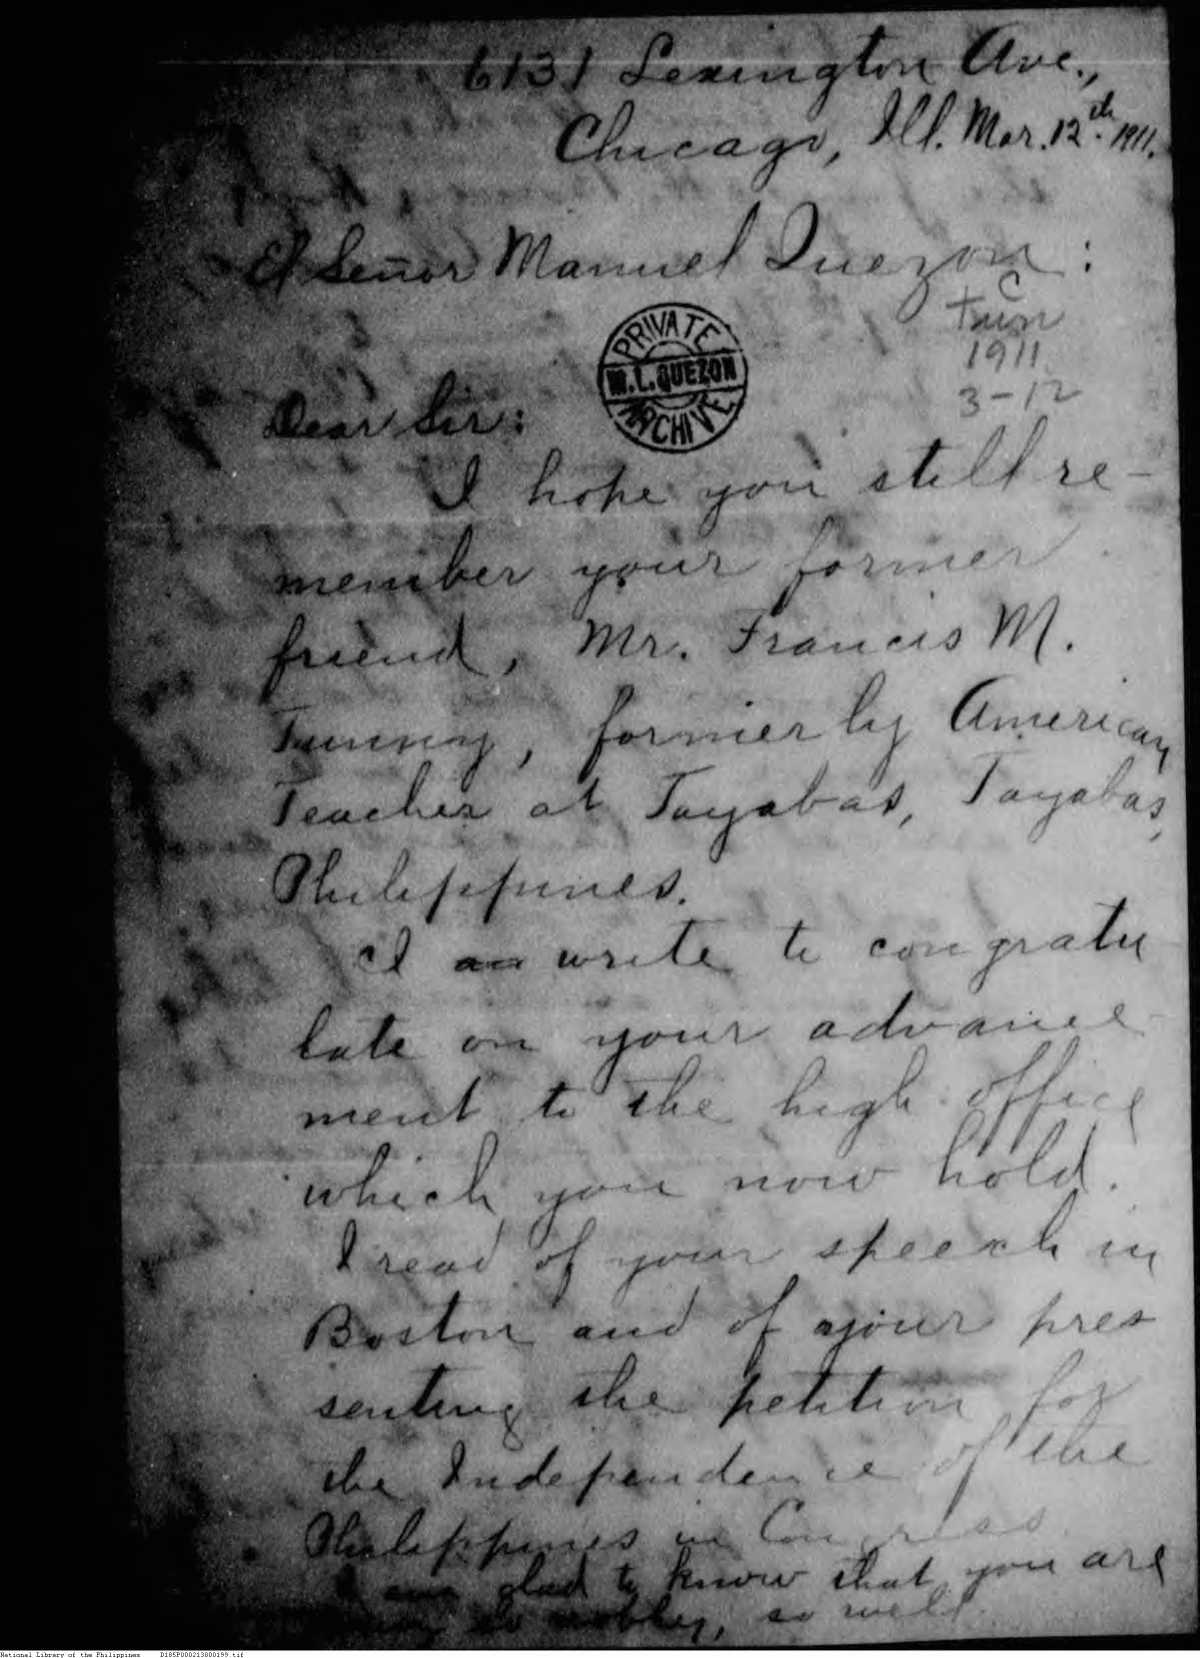 6131 Lexington Ave.,
Chicago, Ill. Mar. 12th. 1911.
El Señor Manuel Quezon:
C
Tunn
1911
3-12
PRIVATE
M.L. QUEZON
ARCHIVE
Dear Sir:
I hope you still re-
member your former
friend, Mr. Francis M.
Tunny, formerly American
Teacher at Tayabas, Tayabas,
Philippines.
I write to congratu
late on your advance-
ment to the high office
which you now hold.
I read of your speech in
Boston and of your pres
senting the petition for
the Independence of the
Philippines in Congress.
I am glad to know that you are
so nobley, so well
National Library of the Philippines D185P000213800199.tif